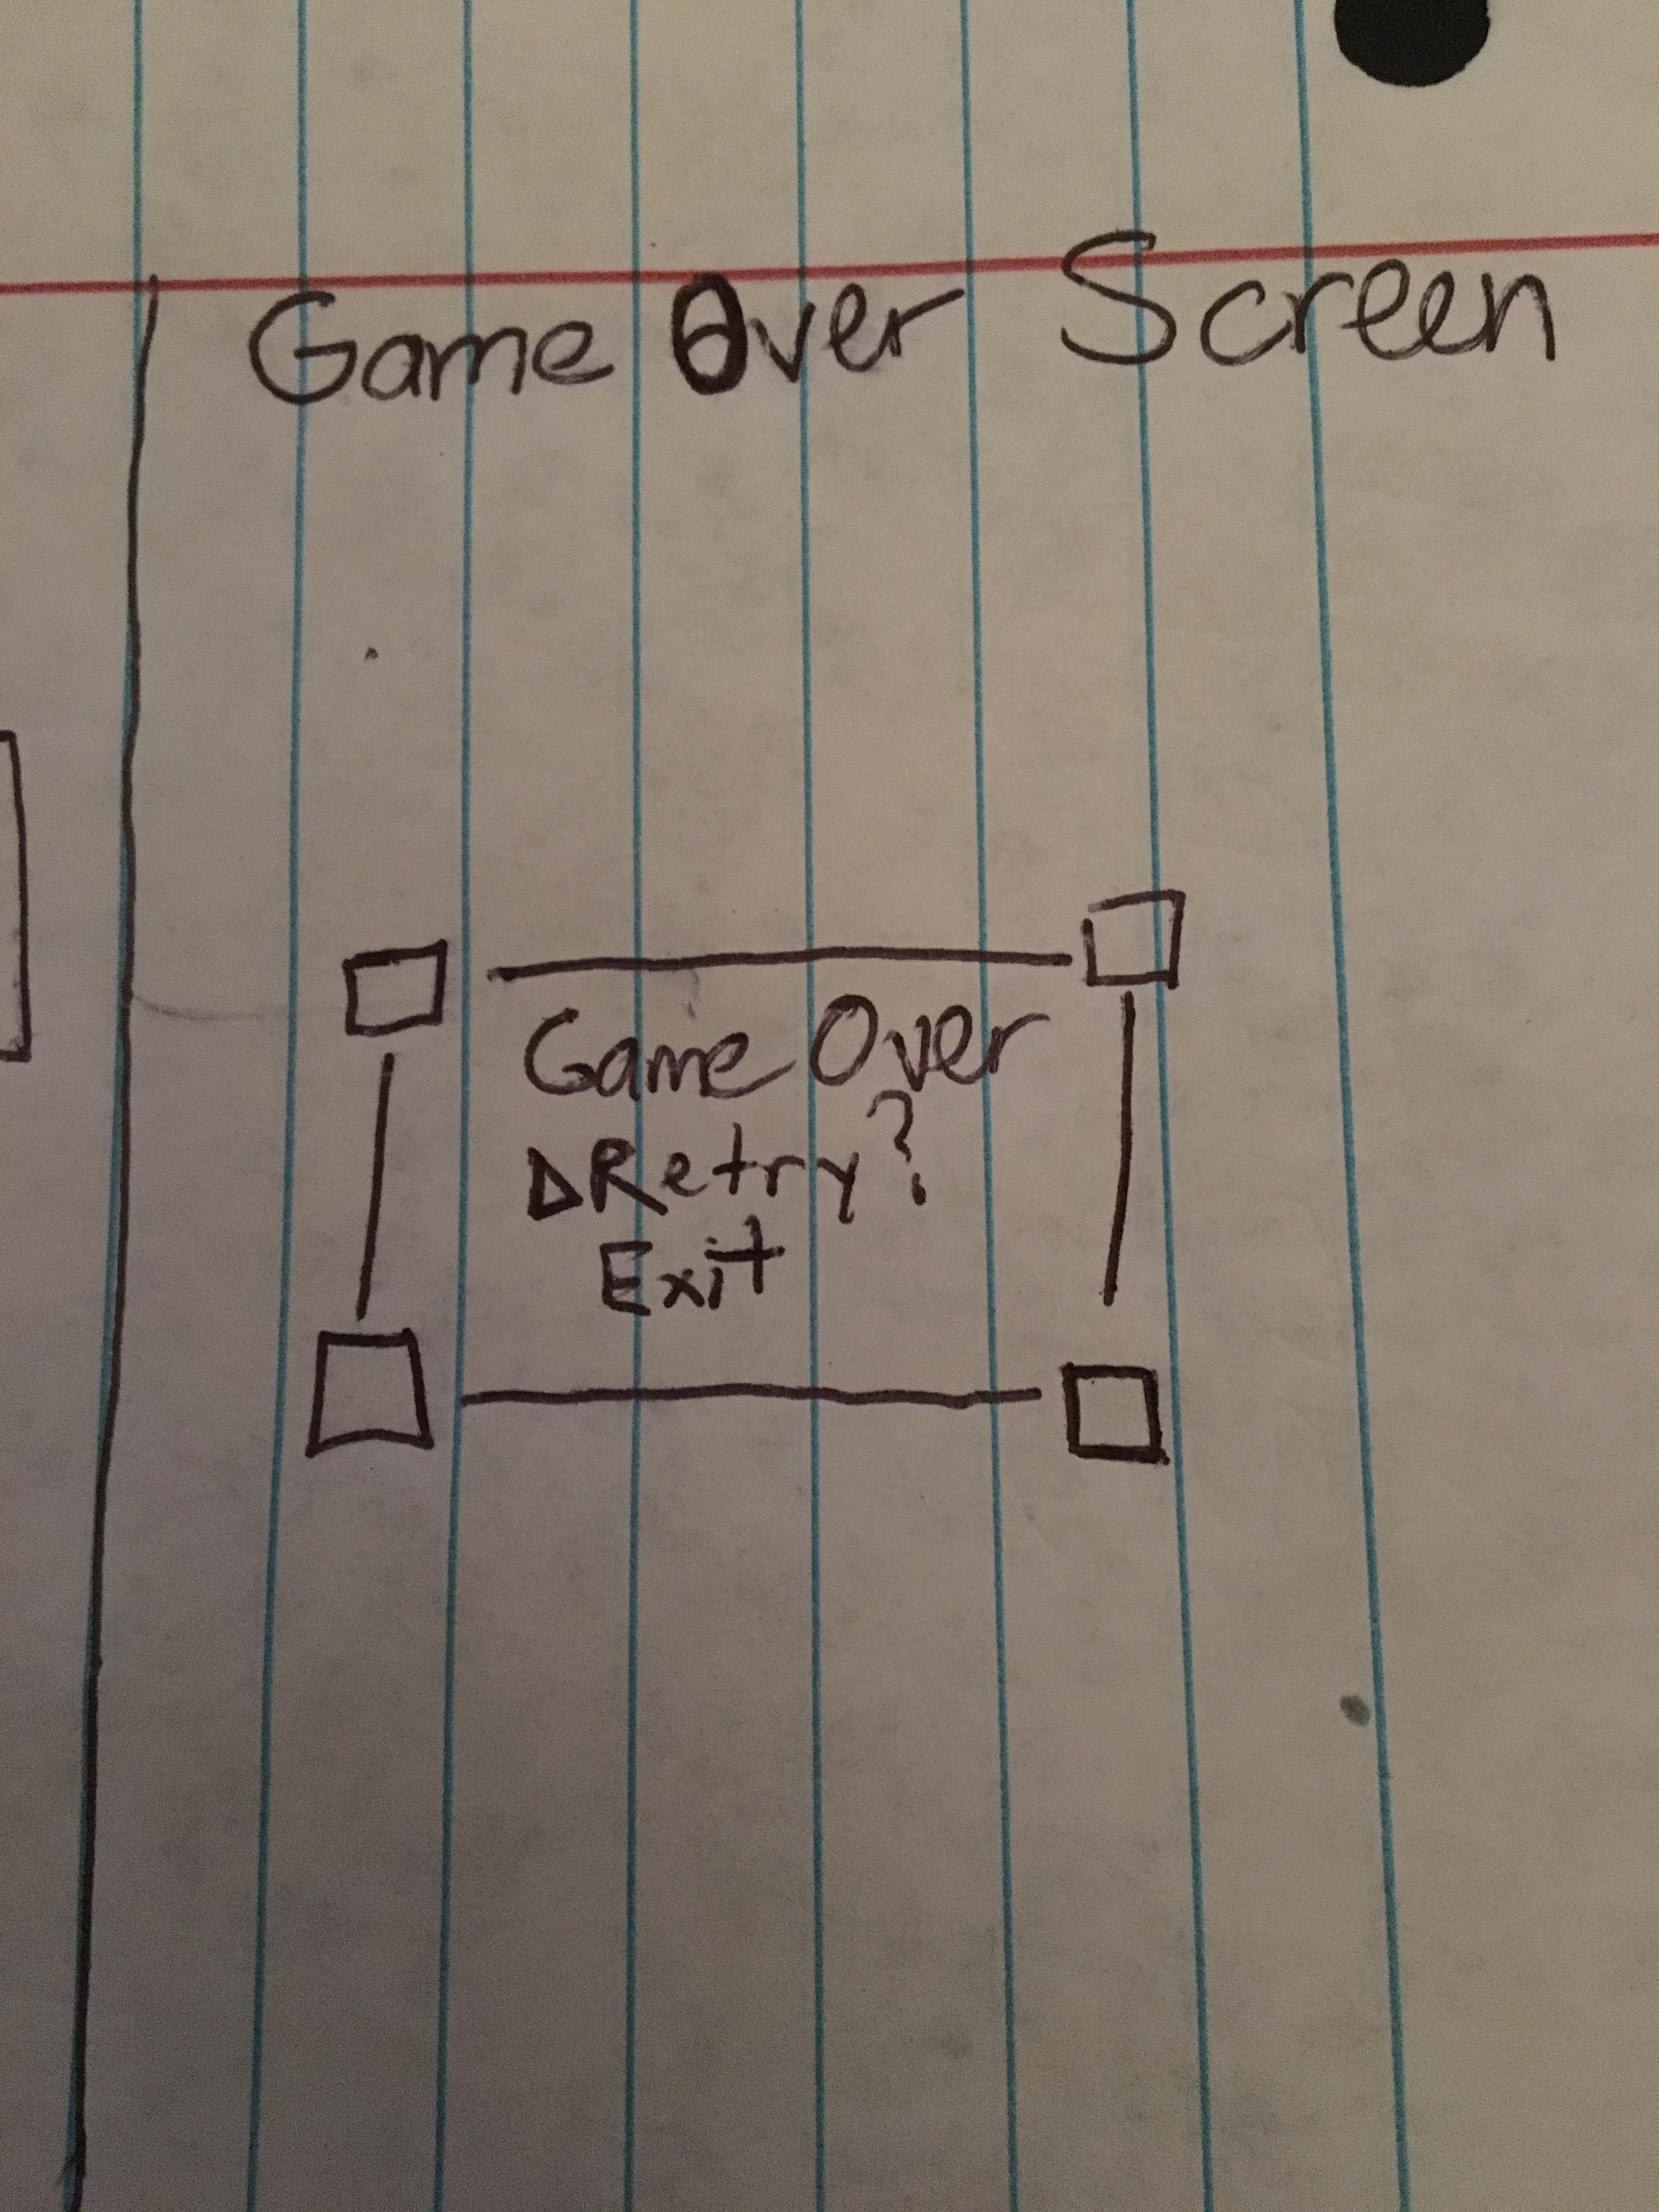 Game Over Screen
Game Over
Retry?
Exit